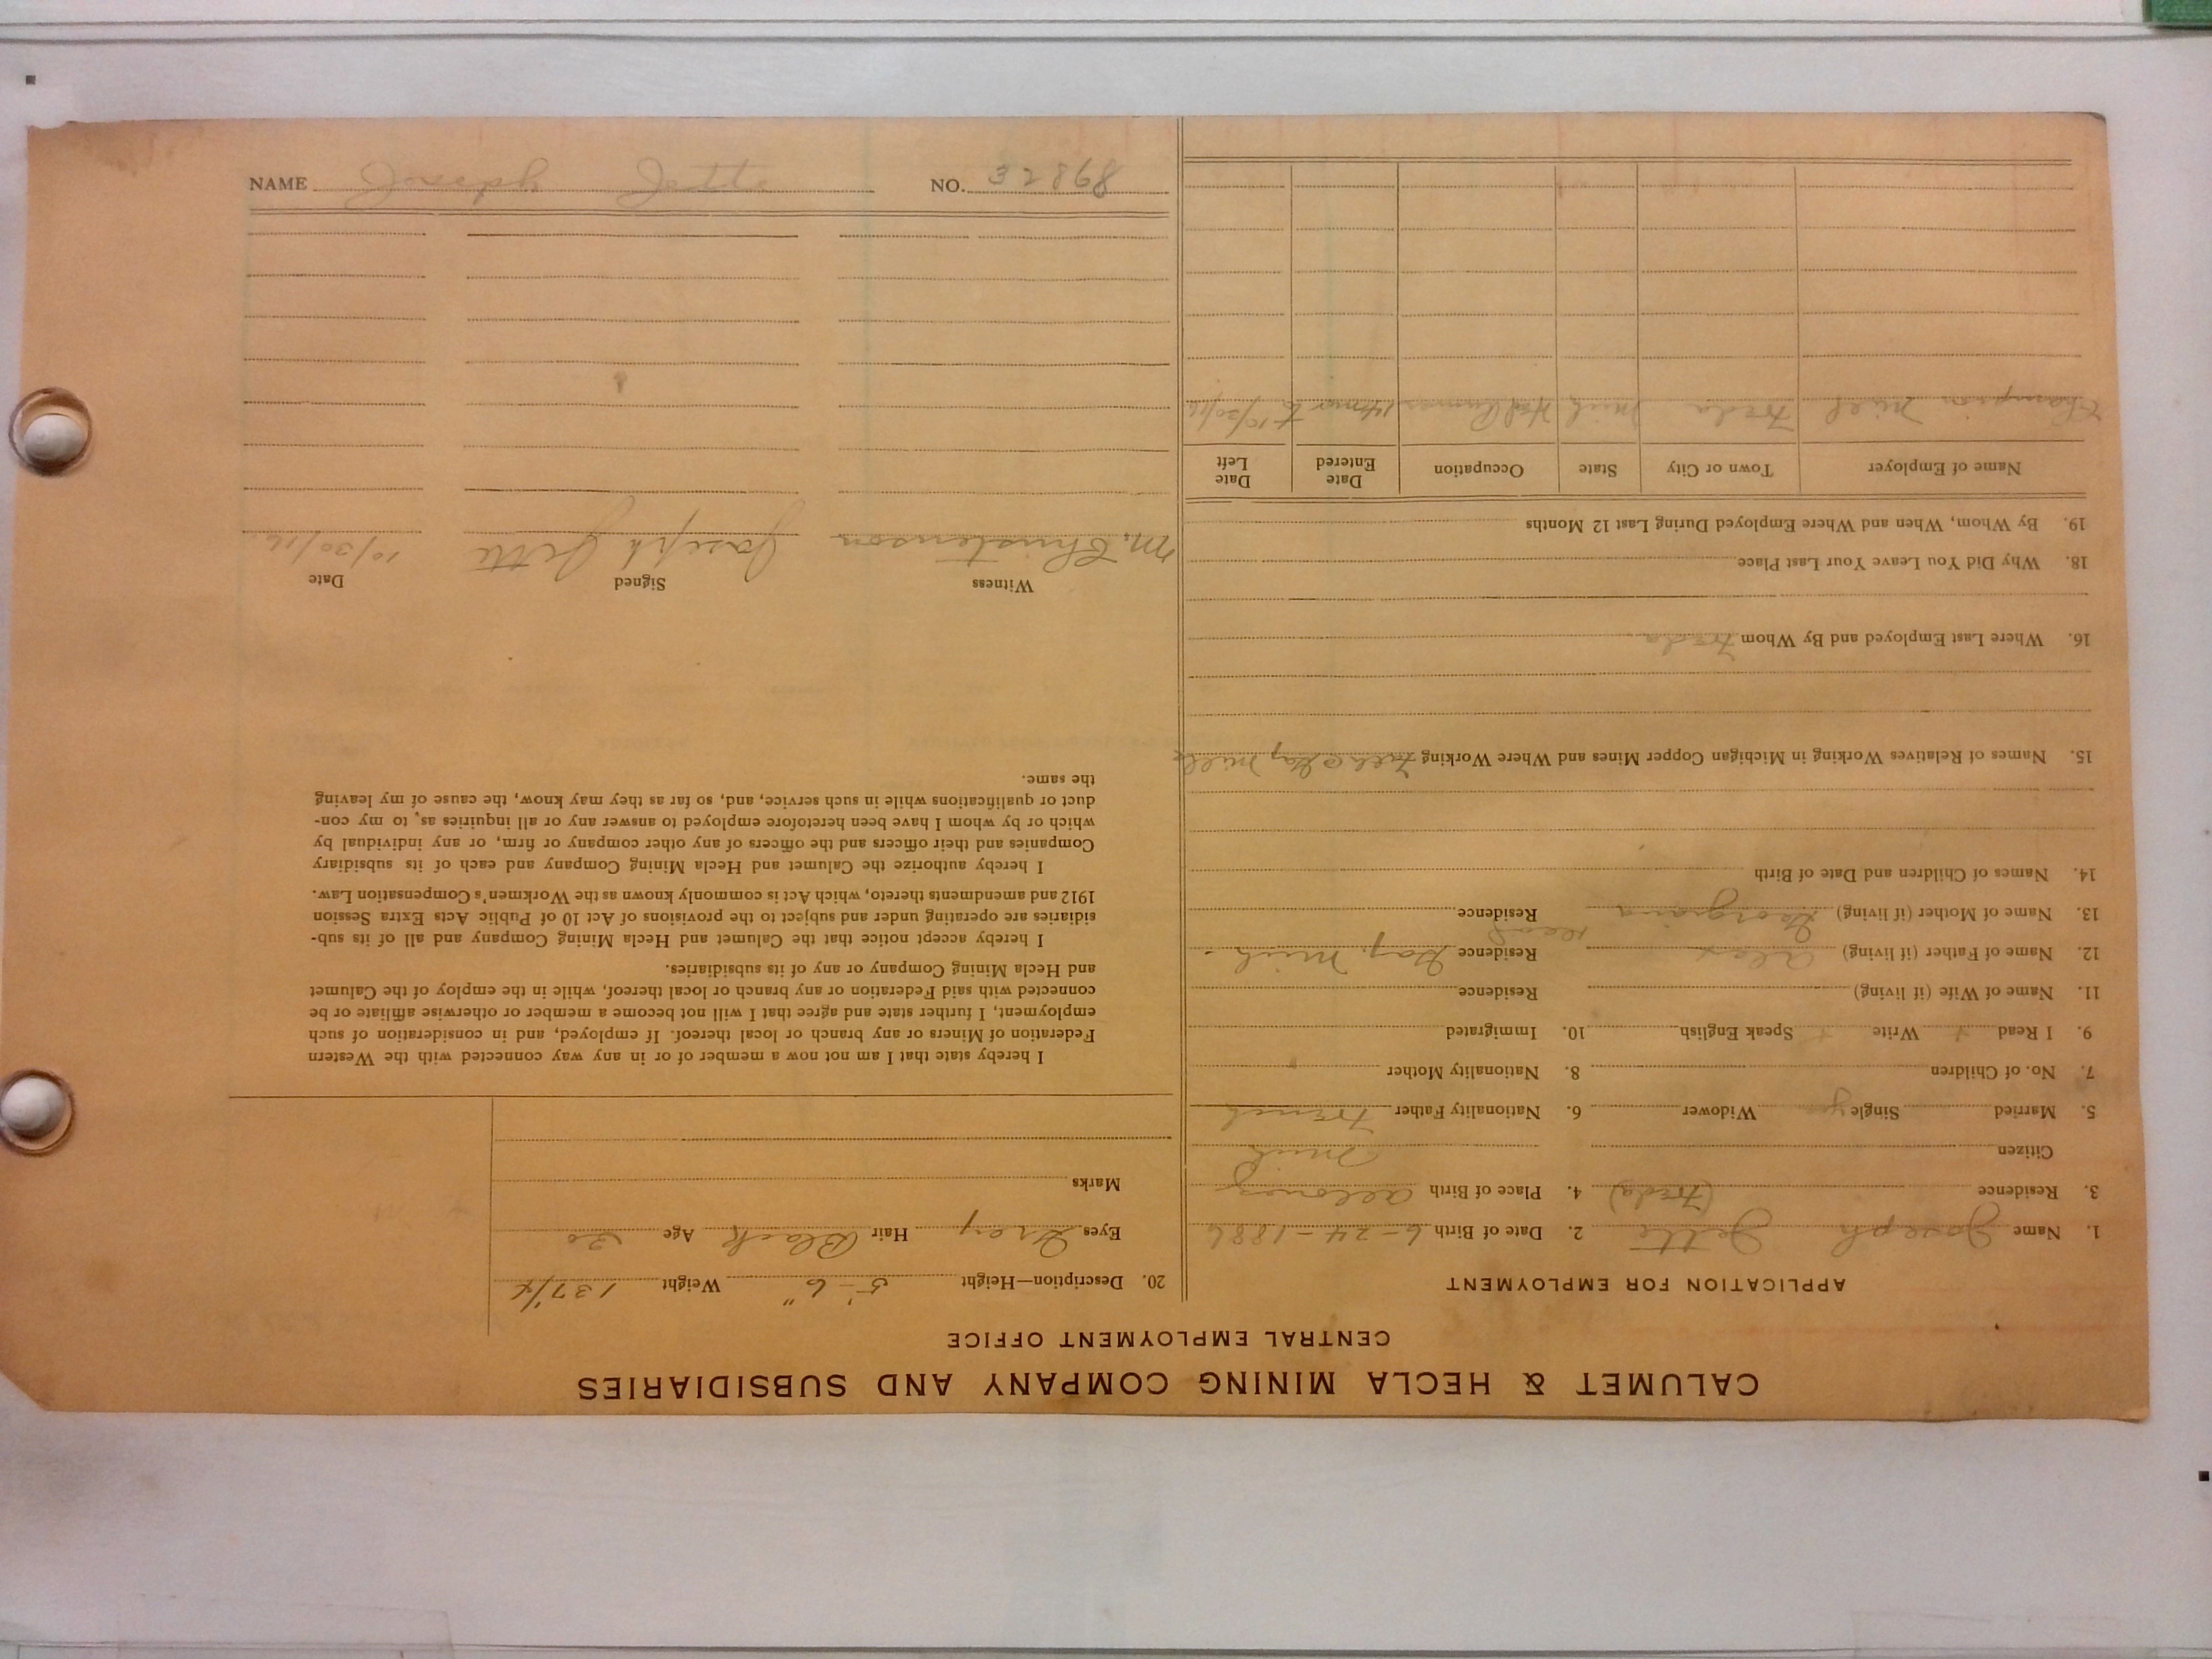 CALUMET & HECLA MINING COMPANY AND SUBSIDIARIES
CENTRAL EMPLOYMENT OFFICE
APPLICATION FOR EMPLOYMENT
1. Name Joseph Jette 2. Date of Birth 6-24-1886
3. Residence (Freda) 4. Place of Birth Allouez
Citizen Mich
5. Married Single yes Widower 6. Nationality Father French
7. No. of Children 8. Nationality Mother "
9. I Read Write Speak English 10. Immigrated
11. Name of Wife (if living) Residence
12. Name of Father (if living) Alex Residence Gay, Mich.
13. Name of Mother (if living) Georgina dead Residence
14. Names of Children and Date of Birth
15. Names of Relatives Working in Michigan Copper Mines and Where Working Gay Mills
16. Where Last Employed and By Whom Freda
18. Why Did You Leave Your Last Place
19. By Whom, When and Where Employed During Last 12 Months
Name of Employer Town or City State Occupation Date Entered Date Left
Champion Mill Freda Mich 10/20/16
20. Description—Height 5'-6" Weight 137 1/4
Eyes Gray Hair Black Age 30
Marks
I hereby state that I am not now a member of or in any way connected with the Western
Federation of Miners or any branch or local thereof. If employed, and in consideration of such
employment, I further state and agree that I will not become a member or otherwise affiliate or be
connected with said Federation or any branch or local thereof, while in the employ of the Calumet
and Hecla Mining Company or any of its subsidiaries.
I hereby accept notice that the Calumet and Hecla Mining Company and all of its sub-
sidiaries are operating under and subject to the provisions of Act 10 of Public Acts Extra Session
1912 and amendments thereto, which Act is commonly known as the Workmen's Compensation Law.
I hereby authorize the Calumet and Hecla Mining Company and each of its subsidiary
Companies and their officers and the officers of any other company or firm, or any individual by
which or by whom I have been heretofore employed to answer any or all inquiries as, to my con-
duct or qualifications while in such service, and, so far as they may know, the cause of my leaving
the same.
Witness Signed Date
M. Christenson Joseph Jette 10/30/16
NAME Joseph Jette NO. 32898